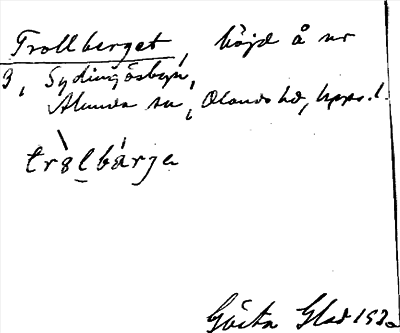 Trollberget, höjd å nr
3, Sydingösbyn,
Alunda sn, Olands hd, Upps. l.
tròlbárja
Gösta Glad 193